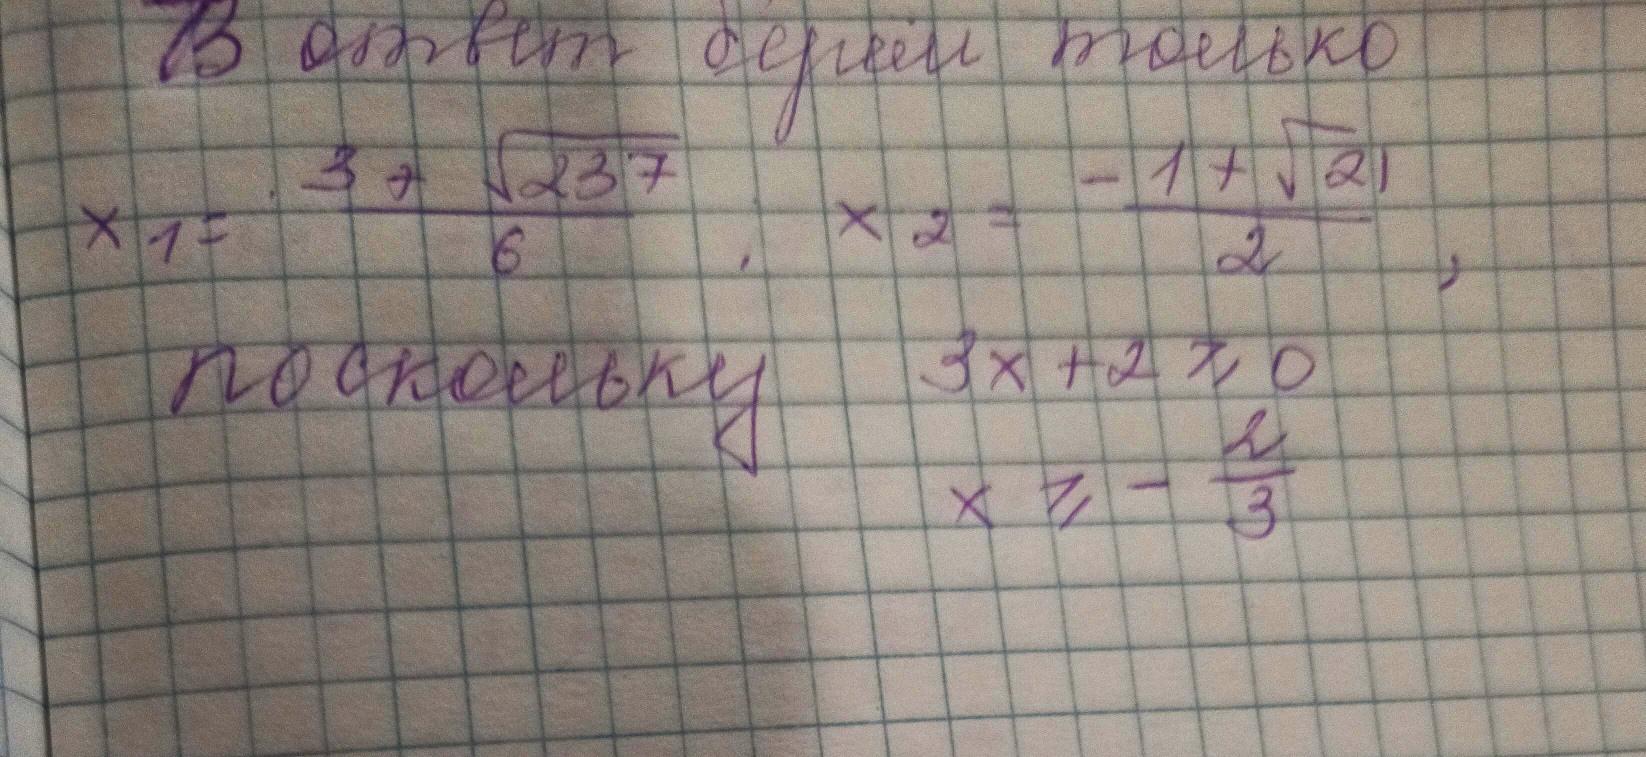 В ответ берём только
x₁ = (3 + √237)/6, x₂ = (-1 + √21)/2,
поскольку 3x + 2 ⩾ 0
x ⩾ - 2/3